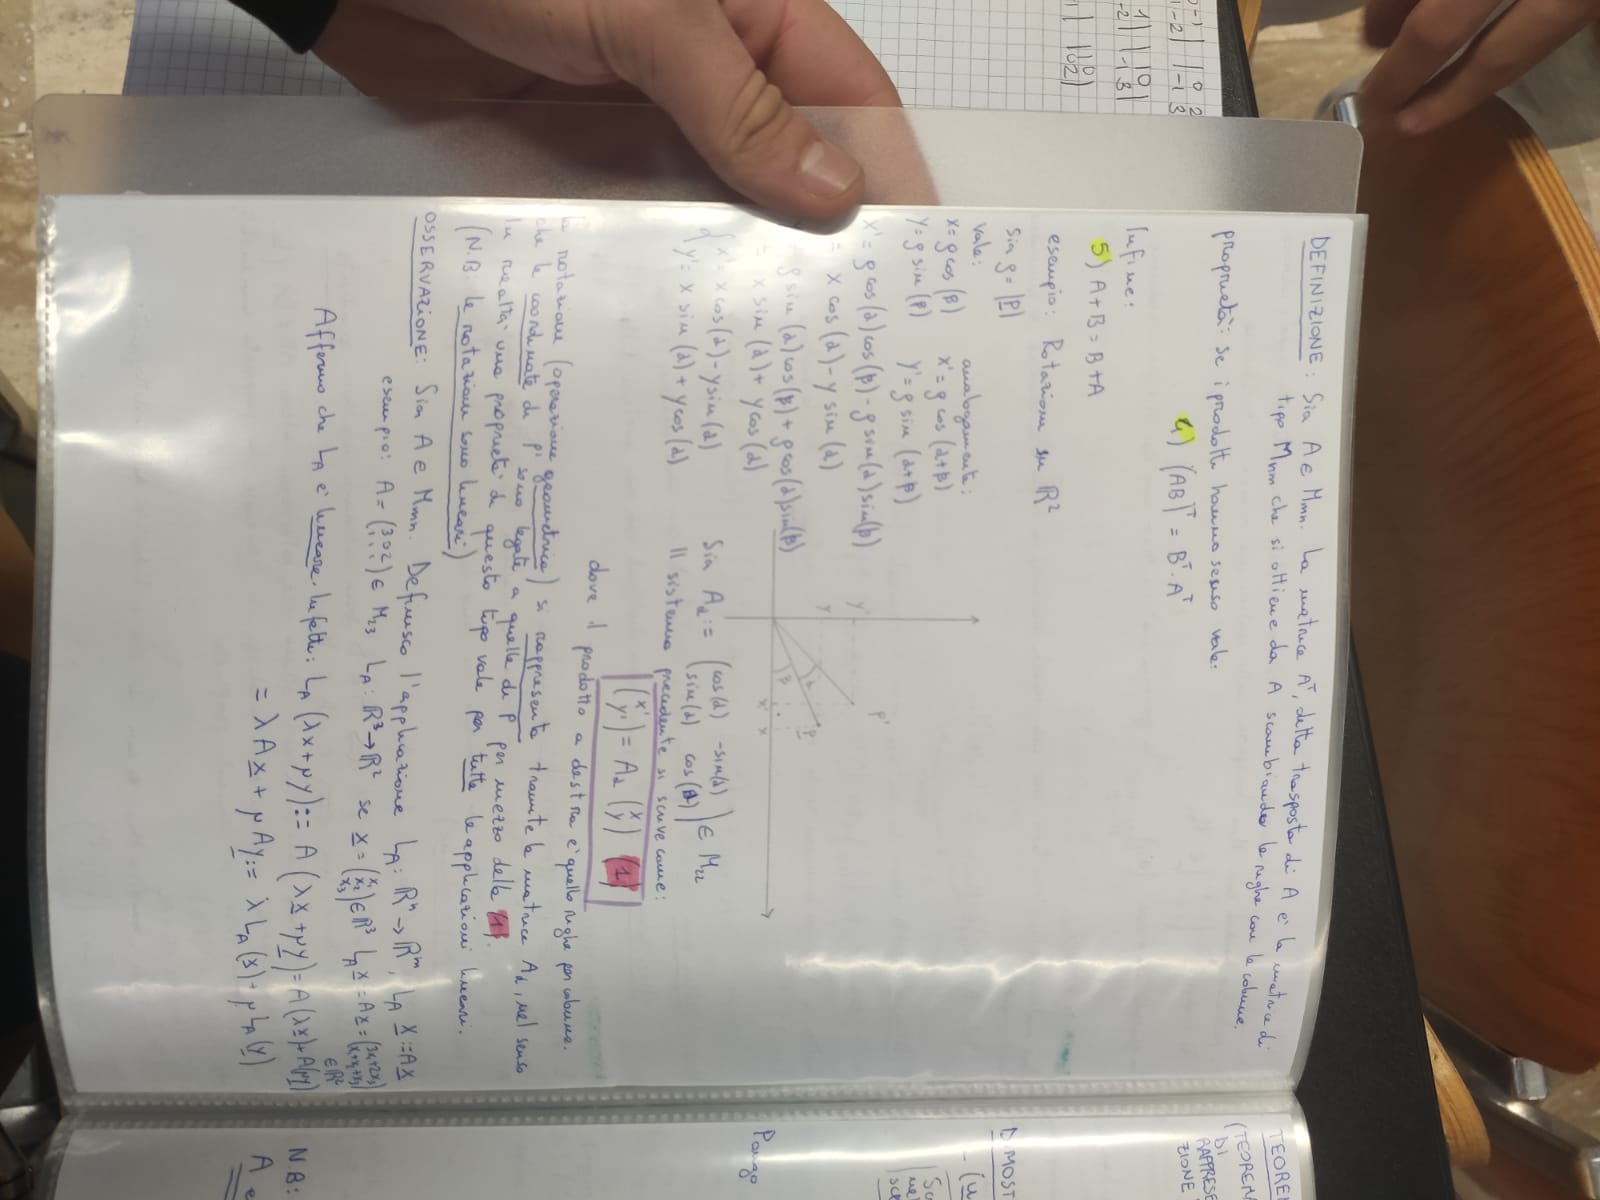 DEFINIZIONE: Sia A ∈ Mmn. La matrice Aᵀ, detta trasposta di A è la matrice di
tipo Mnm che si ottiene da A scambiando le righe con le colonne.
proprietà: se i prodotti hanno senso vale:
4) (AB)ᵀ = Bᵀ·Aᵀ
Infine:
5) A+B = B+A
esempio: Rotazione su ℝ²
sia ρ = |P|
vale:
x = ρ cos(β)
y = ρ sin(β)
analogamente:
x' = ρ cos(α+β)
y' = ρ sin(α+β)
x' = ρ cos(α)cos(β) - ρ sin(α)sin(β)
= x cos(α) - y sin(α)
= ρ sin(α)cos(β) + ρ cos(α)sin(β)
= x sin(α) + y cos(α)
{ x' = x cos(α) - y sin(α)
y' = x sin(α) + y cos(α)
y'
y
α
β
x'
x
P'
P
Sia Aα := (cos(α) -sin(α)
sin(α) cos(α)) ∈ M22
Il sistema precedente si scrive come:
(x'
y') = Aα (x
y) (1)
dove il prodotto a destra è quello righe per colonne.
La rotazione (operazione geometrica) si rappresenta tramite la matrice Aα, nel senso
che le coordinate di p' sono legate a quelle di p per mezzo della (1).
In realtà una proprietà di questo tipo vale per tutte le applicazioni lineari.
(N.B: le rotazioni sono lineari)
OSSERVAZIONE: Sia A ∈ Mmn. Definisco l'applicazione LA: ℝⁿ → ℝᵐ, LA x := Ax
esempio: A = (3 0 2
1 1 1) ∈ M23 LA: ℝ³→ℝ² se x = (x1
x2
x3) ∈ ℝ³ LA x = Ax = (3x1+2x3
x1+x2+x3) ∈ ℝ²
Affermo che LA è lineare. Infatti: LA (λx+μy) := A (λx+μy) = A(λx)+A(μy)
= λAx + μAy := λLA(x) + μLA(y)
TEOREMA
DI
ZIONE
DIMOST
Pongo
N.B: